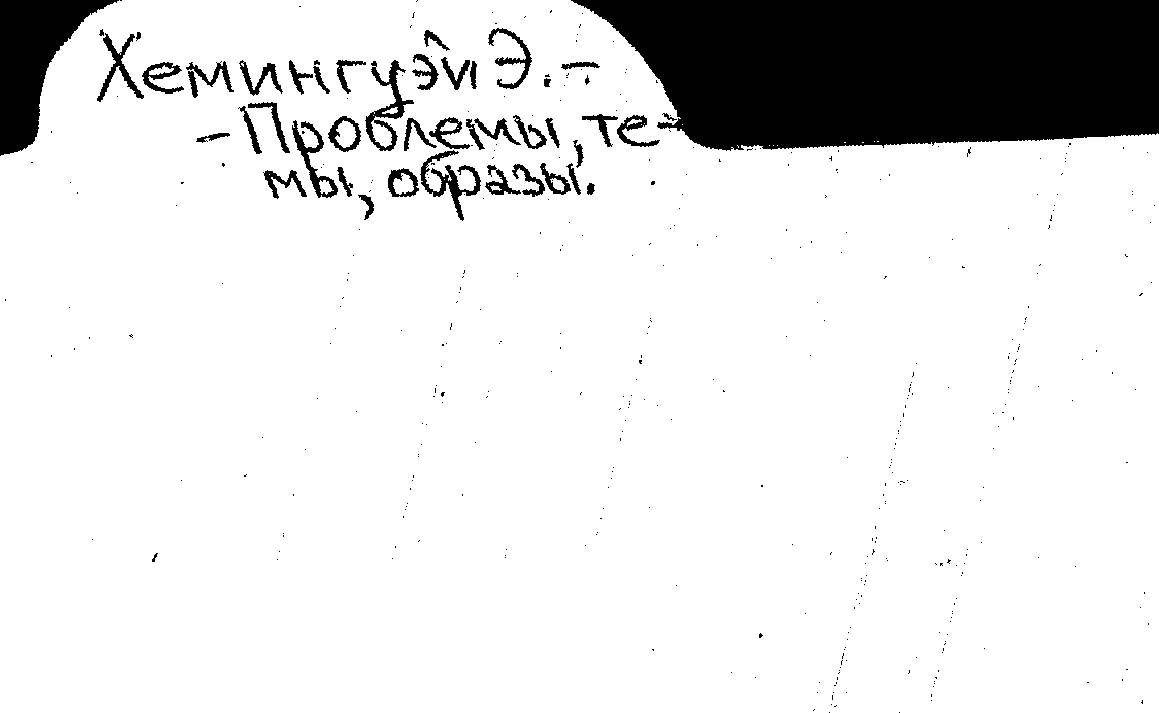 Хемингуэй Э. –
– Проблемы, те-
мы, образы.